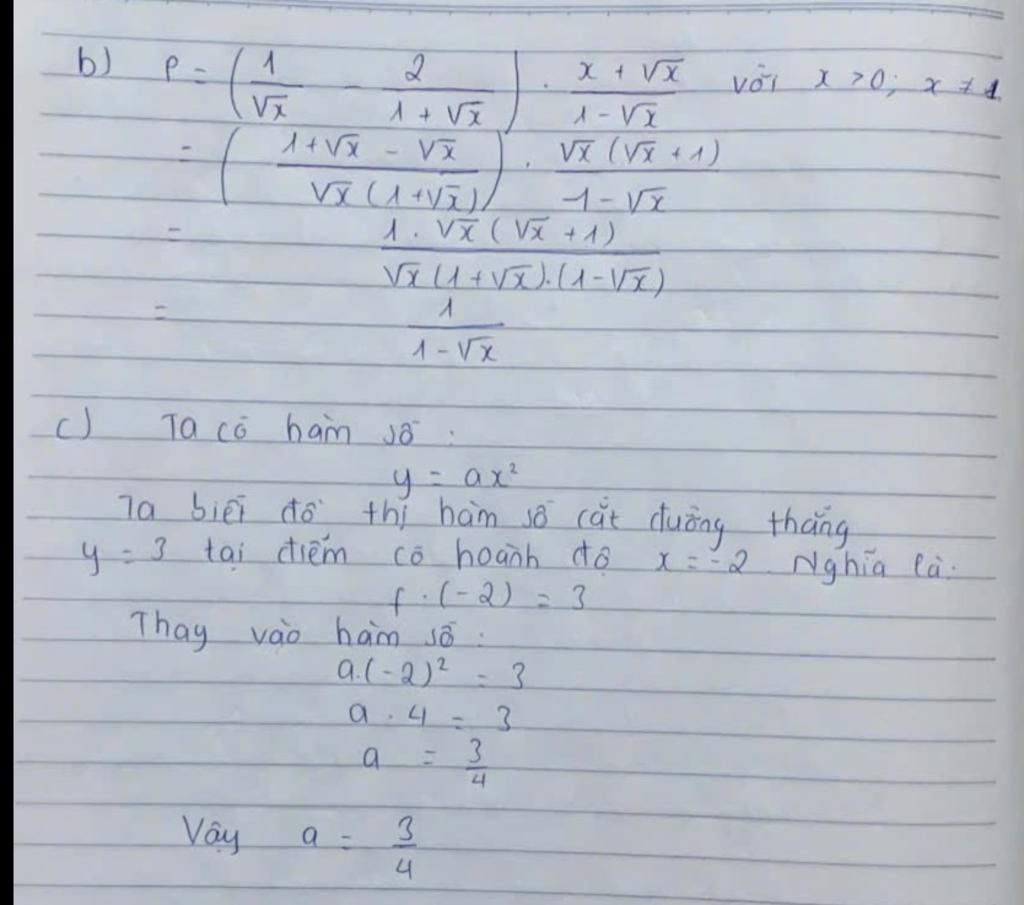 b) P = (1/√x - 2/(1 + √x)) . (x + √x)/(1 - √x) với x > 0; x ≠ 1
= ((1 + √x - √x)/(√x (1 + √x))) . (√x (√x + 1))/(1 - √x)
= (1 . √x (√x + 1))/(√x (1 + √x) . (1 - √x))
= 1/(1 - √x)
c) Ta có hàm số :
y = ax²
Ta biết đồ thị hàm số cắt đường thẳng
y = 3 tại điểm có hoành độ x = -2. Nghĩa là:
f . (-2) = 3
Thay vào hàm số :
a.(-2)² = 3
a . 4 = 3
a = 3/4
Vậy a = 3/4